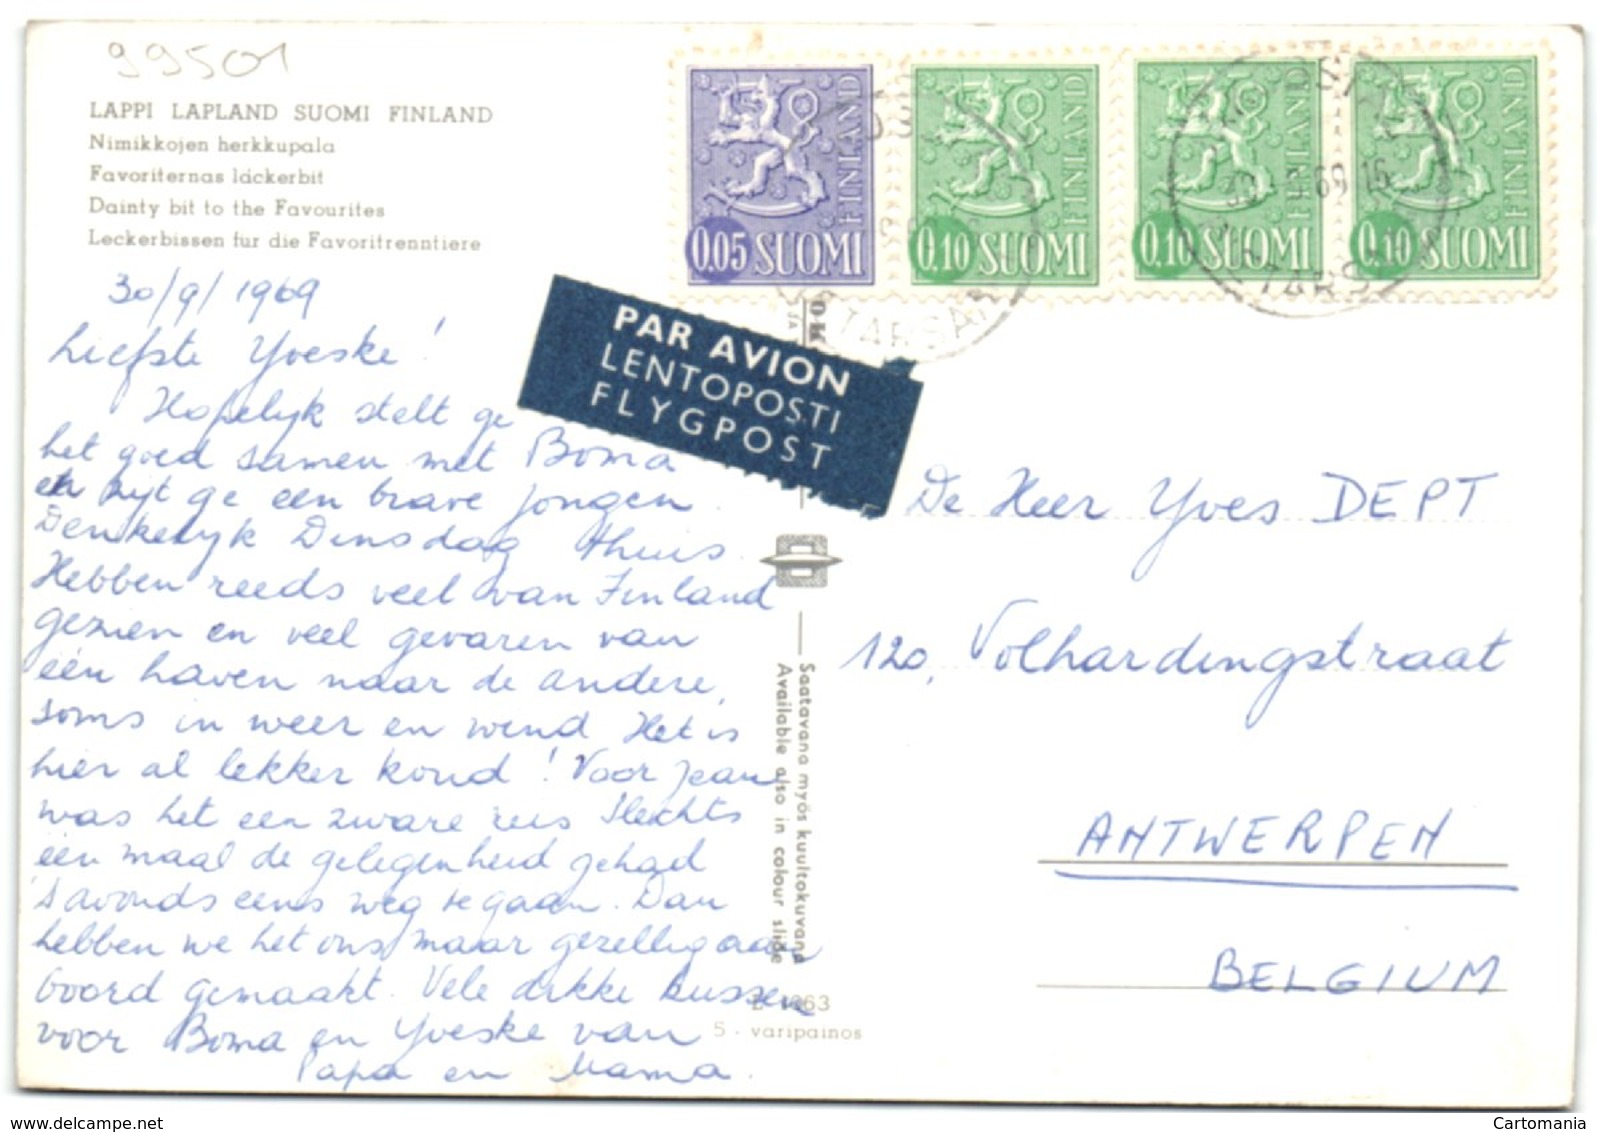 99501
LAPPI LAPLAND SUOMI FINLAND
Nimikkojen herkkupala
Favoriternas läckerbit
Dainty bit to the Favourites
Leckerbissen fur die Favoritrenntiere
30/9/1969
Liefste Yveske!
Hopelijk stelt ge
het goed samen met Boma
en zijt ge een brave jongen.
Denkelijk Dinsdag thuis.
Hebben reeds veel van Finland
gezien en veel gevaren van
één haven naar de andere,
soms in weer en wind. Het is
hier al lekker koud! Voor Jean
was het een zware reis Slechts
één maal de gelegenheid gehad
's avonds eens weg te gaan. Dan
hebben we het ons maar gezellig aan
boord gemaakt. Vele dikke kussen
voor Boma en Yveske van
Papa en Mama.
0.05 SUOMI
FINLAND
0.10 SUOMI
FINLAND
0.10 SUOMI
FINLAND
0.10 SUOMI
FINLAND
PAR AVION
LENTOPOSTI
FLYGPOST
Saatavana myös kuultokuvana
Available also in colour slide
5 - varipainos
De Heer Yves DEPT
120, Volhardingstraat
ANTWERPEN
BELGIUM
Cartomania